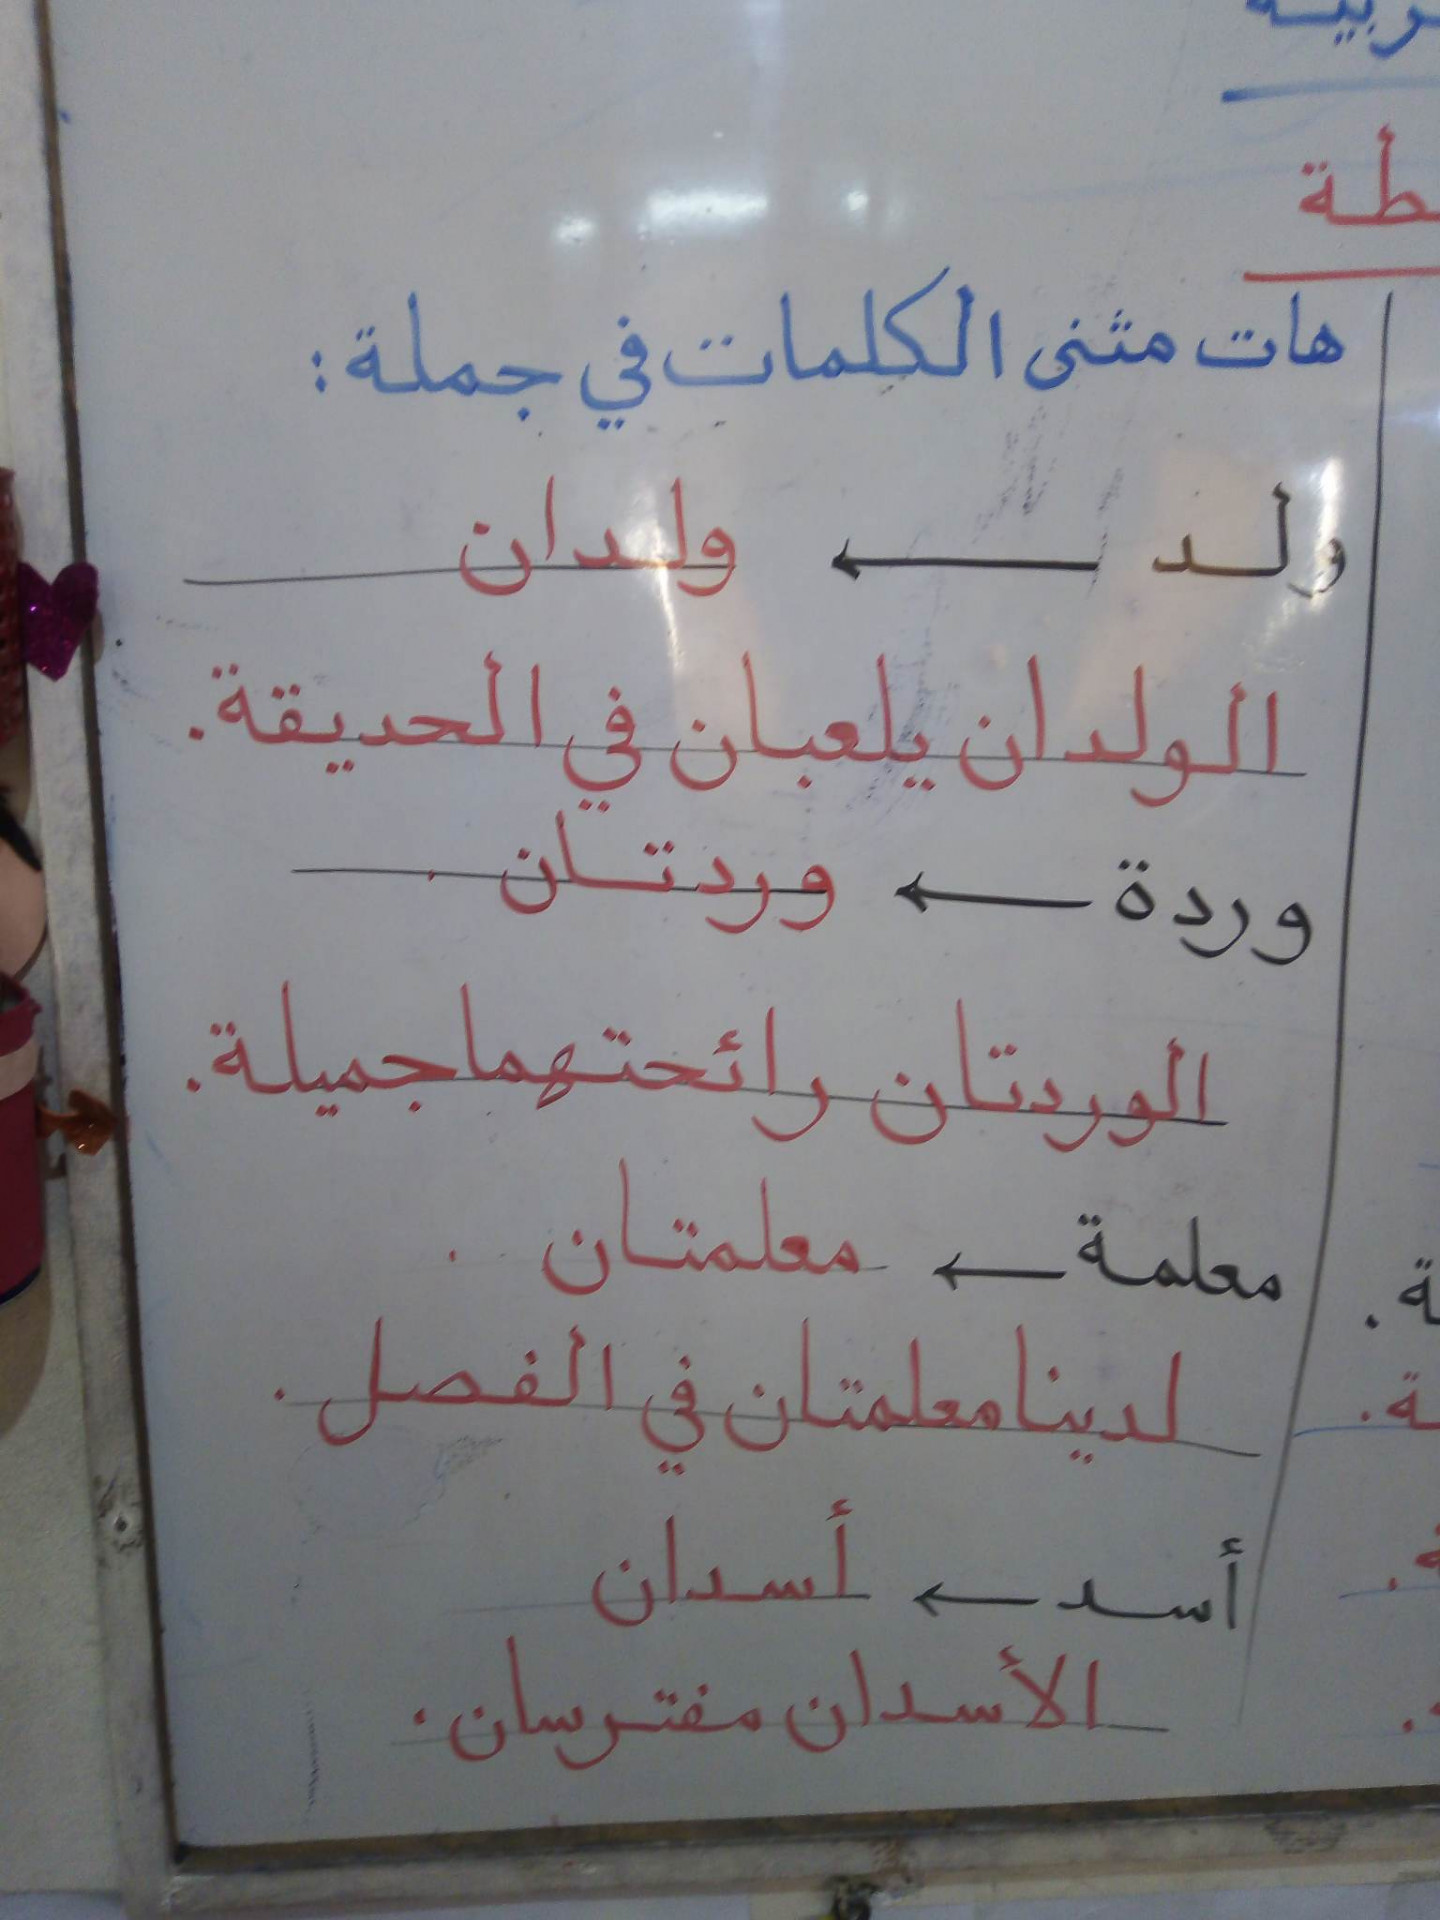 هات مثنى الكلمات في جملة :
ولد ← ولدان
الولدان يلعبان في الحديقة .
وردة ← وردتان
الوردتان رائحتهما جميلة .
معلمة ← معلمتان
لدينا معلمتان في الفصل .
أسد ← أسدان
الأسدان مفترسان .